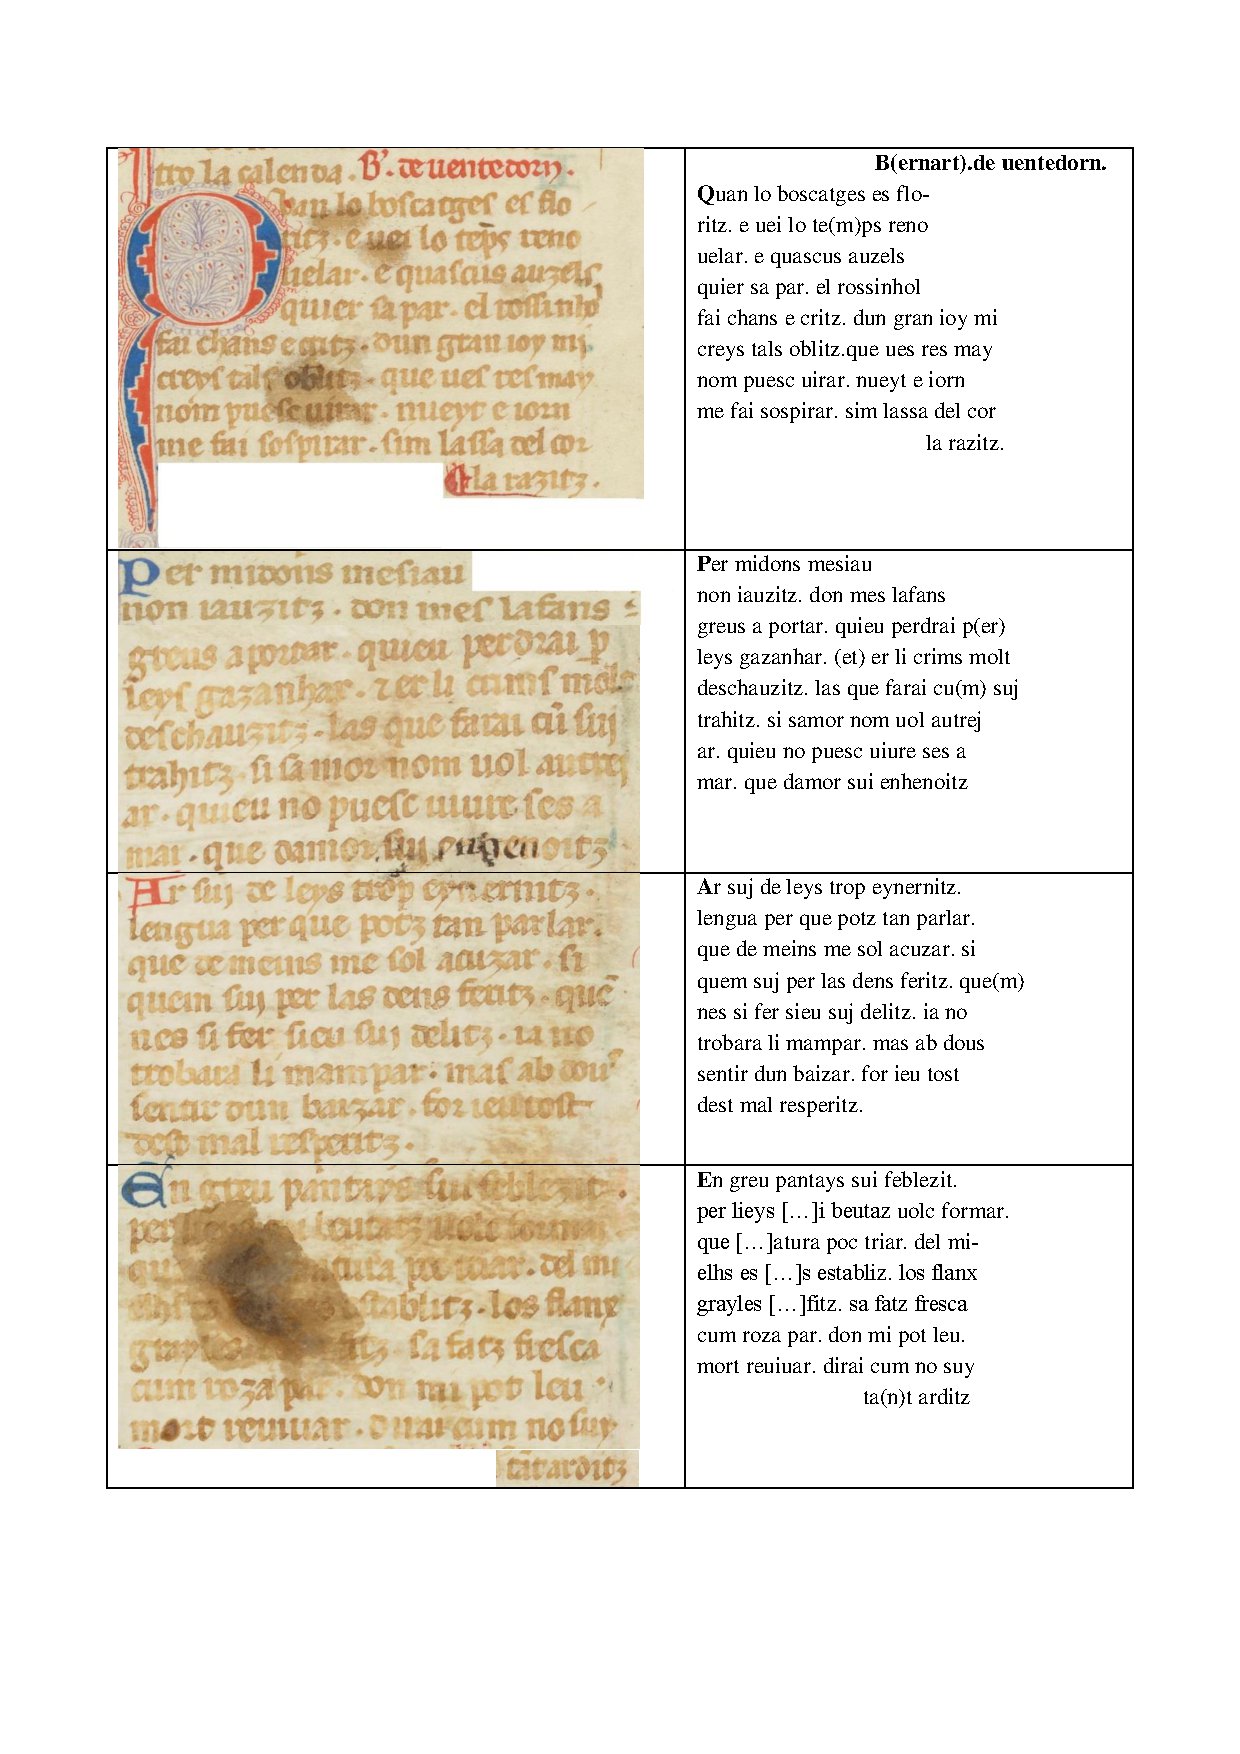 tro la calenda. B'. de uentedorn.
Quan lo boscatges es flo
ritz. e uei lo tēps reno
uelar. e quascus auzels
quier sa par. el rossinhol
fai chans e critz. dun gran ioy mi
creys tals oblitz. que ues res may
nom puesc uirar. nueyt e iorn
me fai sospirar. sim lassa del cor
la razitz.
B(ernart).de uentedorn.
Quan lo boscatges es flo-
ritz. e uei lo te(m)ps reno
uelar. e quascus auzels
quier sa par. el rossinhol
fai chans e critz. dun gran ioy mi
creys tals oblitz.que ues res may
nom puesc uirar. nueyt e iorn
me fai sospirar. sim lassa del cor
la razitz.
Per midons mesiau
non iauzitz. don mes lafans
greus a portar. quieu perdrai p
leys gazanhar. ⁊ er li crims molt
deschauzitz. las que farai cū suj
trahitz. si samor nom uol autrej
ar. quieu no puesc uiure ses a
mar. que damor suj enhenoitz
Per midons mesiau
non iauzitz. don mes lafans
greus a portar. quieu perdrai p(er)
leys gazanhar. (et) er li crims molt
deschauzitz. las que farai cu(m) suj
trahitz. si samor nom uol autrej
ar. quieu no puesc uiure ses a
mar. que damor sui enhenoitz
Ar suj de leys trop eynernitz.
lengua per que potz tan parlar.
que de meins me sol acuzar. si
quem suj per las dens feritz. quē
nes si fer sieu suj delitz. ia no
trobara li mampar. mas ab dous
sentir dun baizar. for ieu tost
dest mal resperitz.
Ar suj de leys trop eynernitz.
lengua per que potz tan parlar.
que de meins me sol acuzar. si
quem suj per las dens feritz. que(m)
nes si fer sieu suj delitz. ia no
trobara li mampar. mas ab dous
sentir dun baizar. for ieu tost
dest mal resperitz.
En greu pantays sui feblezit.
per beutatz uolc formar.
que atura poc triar. del mi
elhs establitz. los flanx
grayles fitz. sa fatz fresca
cum roza par. don mi pot leu
mort reuiuar. dirai cum no suy
tāt arditz
En greu pantays sui feblezit.
per lieys […]i beutaz uolc formar.
que […]atura poc triar. del mi-
elhs es […]s establiz. los flanx
grayles […]fitz. sa fatz fresca
cum roza par. don mi pot leu.
mort reuiuar. dirai cum no suy
ta(n)t arditz